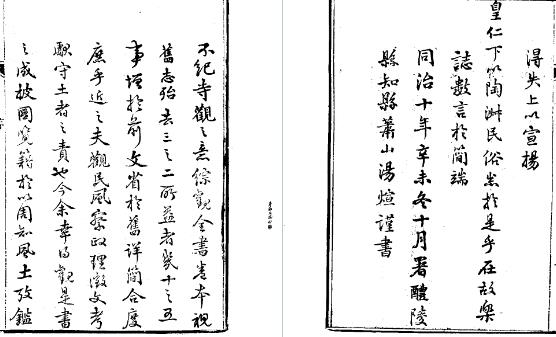 不紀寺觀之意綜觀全書卷本視
舊志殆去三之二所益者幾十之五
事增於前文省於舊詳簡合度
庶乎近之夫觀民風察政理徵文考
獻守土者之責也今余幸得觀是書
之成披圖覽籍於以周知風土攷鑑
得失上以宣揚
皇仁下以陶淑民俗悉於是乎在故樂
誌數言於簡端
同治十年辛未冬十月署醴陵
縣知縣蕭山湯煊謹書